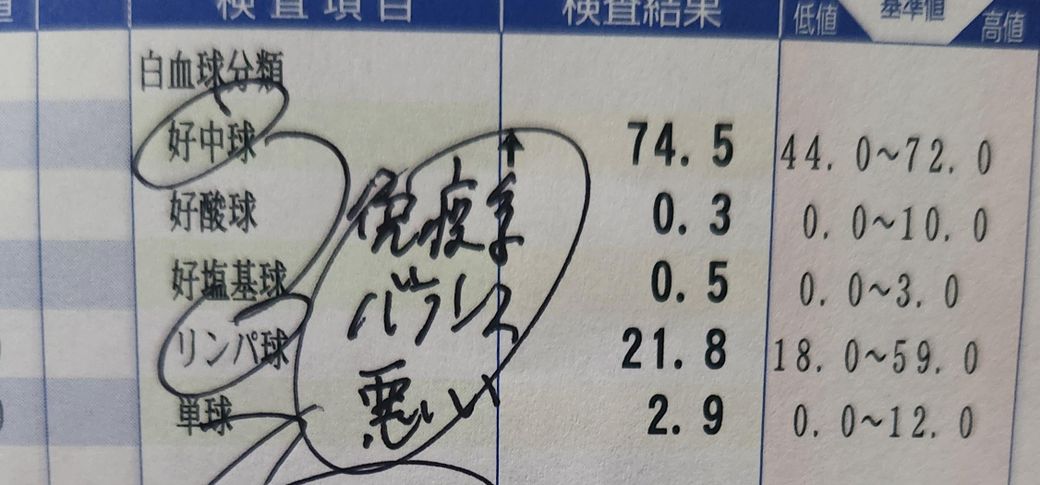 検査項目 検査結果 低値 基準値 高値
白血球分類
好中球 ↑ 74.5 44.0~72.0
好酸球 0.3 0.0~10.0
好塩基球 0.5 0.0~3.0
リンパ球 21.8 18.0~59.0
単球 2.9 0.0~12.0
免疫系
バランス
悪い